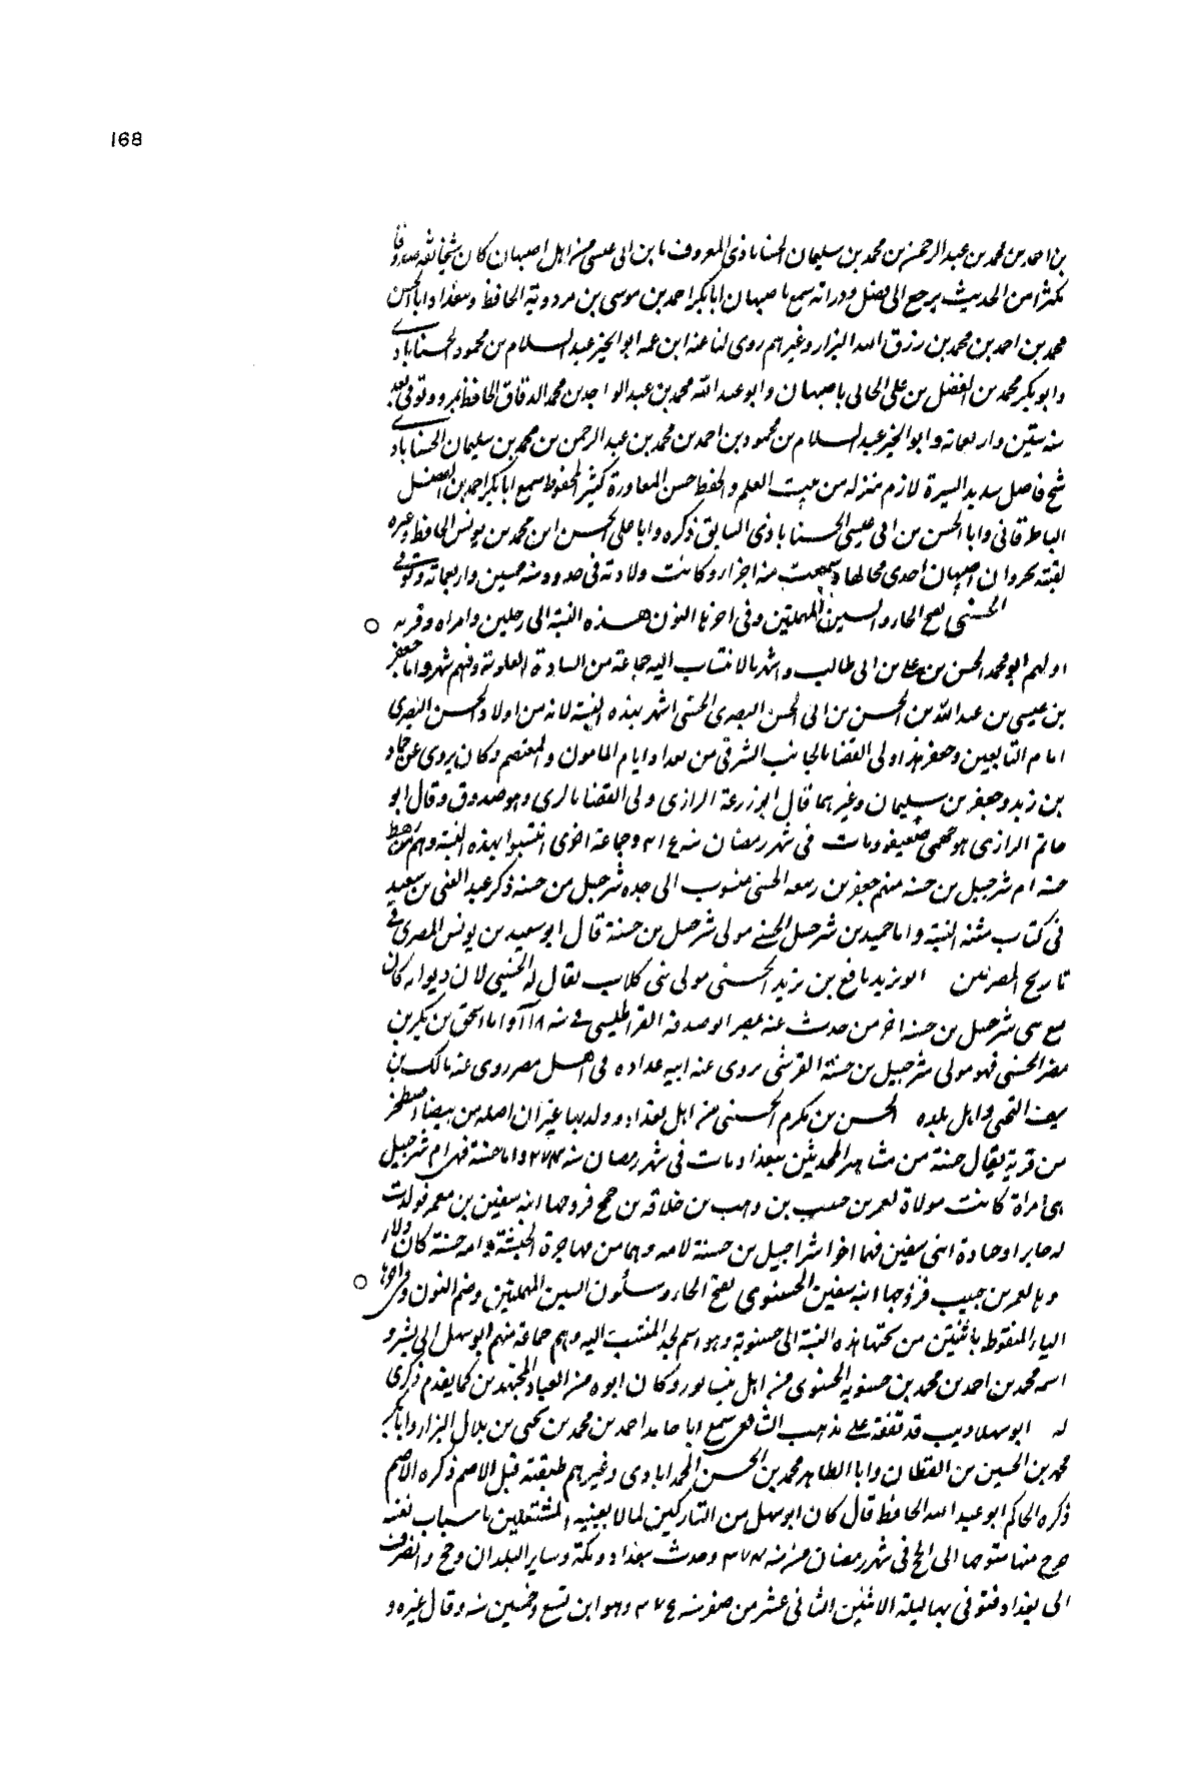 168
بن احمد بن محمد بن عبد الرحمن بن محمد بن سليمان الحسناباذى المعروف بابن ابى عيسى من اهل اصبهان كان شيخا ثقة صدوقا
مكثرا من الحديث يرجع الى فضل ودراية سمع باصبهان ابابكر احمد بن موسى بن مردوية الحافظ وببغداد ابا الحسن
محمد بن احمد بن محمد بن رزق الله البزار وغيرهم روى لنا عنه ابن عمه ابو الخير عبد السلام بن محمود الحسناباذى
وابو بكر محمد بن الفضل بن على الخانى باصبهان وابو عبد الله محمد بن عبد الواحد بن محمد الدقاق الحافظ بمرو وتوفى بعد
سنة ستين واربعمائة وابو الخير عبد السلام بن محمود بن احمد بن محمد بن عبد الرحمن بن محمد بن سليمان الحسناباذى
شيخ فاضل سديد السيرة لازم منزله من بيت العلم والحفظ حسن المحاورة كثير المحفوظ سمع ابابكر احمد بن الفضل
الباطرقانى وابا الحسن بن ابى عيسى الحسناباذى السابق ذكره وابا على الحسن ابن محمد بن يونس الحافظ وغيره
لقيته بجروان اصبهان احدى محالها وسمعت منه اجزاء وكانت ولادته فى حدود سنة خمسين واربعمائة وتوفى
الحسنى بفتح الحاء والسين المهملتين وفى اخرها النون هذه النسبة الى رجلين وامراة وقرية
اولهم ابو محمد الحسن بن على بن ابى طالب واشتهر بالانتساب اليه جماعة من السادة العلوية وفيهم شهرة واما جعفر
بن عيسى بن عبد الله بن الحسن بن ابى الحسن البصرى الحسنى اشتهر بهذه النسبة لانه من اولاد الحسن البصرى
امام التابعين وجعفر هذا ولى القضا بالجانب الشرقى من بغداد ايام المامون والمعتصم وكان يروى عن حماد
بن زيد وجعفر بن سليمان وغيرهما قال ابو زرعة الرازى ولى القضا بالرى وهو صدوق وقال ابو
حاتم الرازى هو جهمى ضعيف ومات فى شهر رمضان سنة وجماعة اخرى انتسبوا بهذه النسبة وهم من رهط
حسنة ام شرحبيل بن حسنة منهم جعفر بن ربيعه الحسنى منسوب الى جده شرحبيل بن حسنة ذكر عبد الغنى بن سعيد
فى كتاب مشتبه النسبة واما حميد بن شرحبيل الحسنى مولى شرحبيل بن حسنة قال ابو سعيد بن يونس المصرى فى
تاريخ المصريين ابو يزيد نافع بن يزيد الحسنى مولى بنى كلاب يقال له الحسنى لان ديوانه كان
مع بنى شرحبيل بن حسنة اخر من حدث عنه بمصر ابو صدقه القراطيسى فى سنه واما اسحق بن بكر بن
مضر الحسنى فهو مولى شرحبيل بن حسنة القرشى يروى عنه ابيه عداده فى اهل مصر روى عنه مالك بن
سيف التجيبى واهل بلده الحسن بن مكرم الحسنى من اهل بغداد وولد بها غير ان اصله من بيضاء اصطخر
من قرية يقال حسنة من مشاهير المحدثين ببغداد ومات فى شهر رمضان سنه ٢٧٤ واما حسنة فهى ام شرحبيل
هى امراة كانت مولاة لمعمر بن حبيب بن وهب بن حذافة بن جمح فزوجها ابنه سفين بن معمر فولدت
له جابرا وجنادة ابنى سفين فهما اخوا شراحبيل بن حسنة لامه وهما من مهاجرة الحبشة وامه حسنة كان ولاء
وها لمعمر بن حبيب فزوجها ابنه سفين الحسنوى بفتح الحاء وسكون السين المهملتين وضم النون وفى اخرها
الياء المنقوط باثنتين من تحتها هذه النسبة الى حسنوية وهو اسم لجد المنتسب اليه وهم جماعة منهم ابو سهل ابى بشر و
اسمه محمد بن احمد بن محمد بن حسنوية الحسنوى من اهل نيسابور وكان ابوه من العباد المجتهدين كما يقدم ذكرى
له ابو سهل اديب قد تفقه على مذهب الشافعى سمع ابا حامد احمد بن محمد بن يحيى بن بلال البزار وابابكر
محمد بن الحسين بن القطان وابا الطاهر محمد بن الحسن المحمدابادى وغيرهم طبقته قبل الاصم ذكره الاصم
ذكره الحاكم ابو عبد الله الحافظ قال كان ابو سهل من التاركين لما لا يعنيه والمشتغلين باسباب نفسه
خرج منها متوجها الى الحج فى شهر رمضان من سنه وحدث ببغداد ومكة وساير البلدان وحج وانصرف
الى بغداد فتوفى بها ليلة الاثنين الثانى عشر من صفر سنه وهو ابن تسع وخمسين سنه وقال غيره و